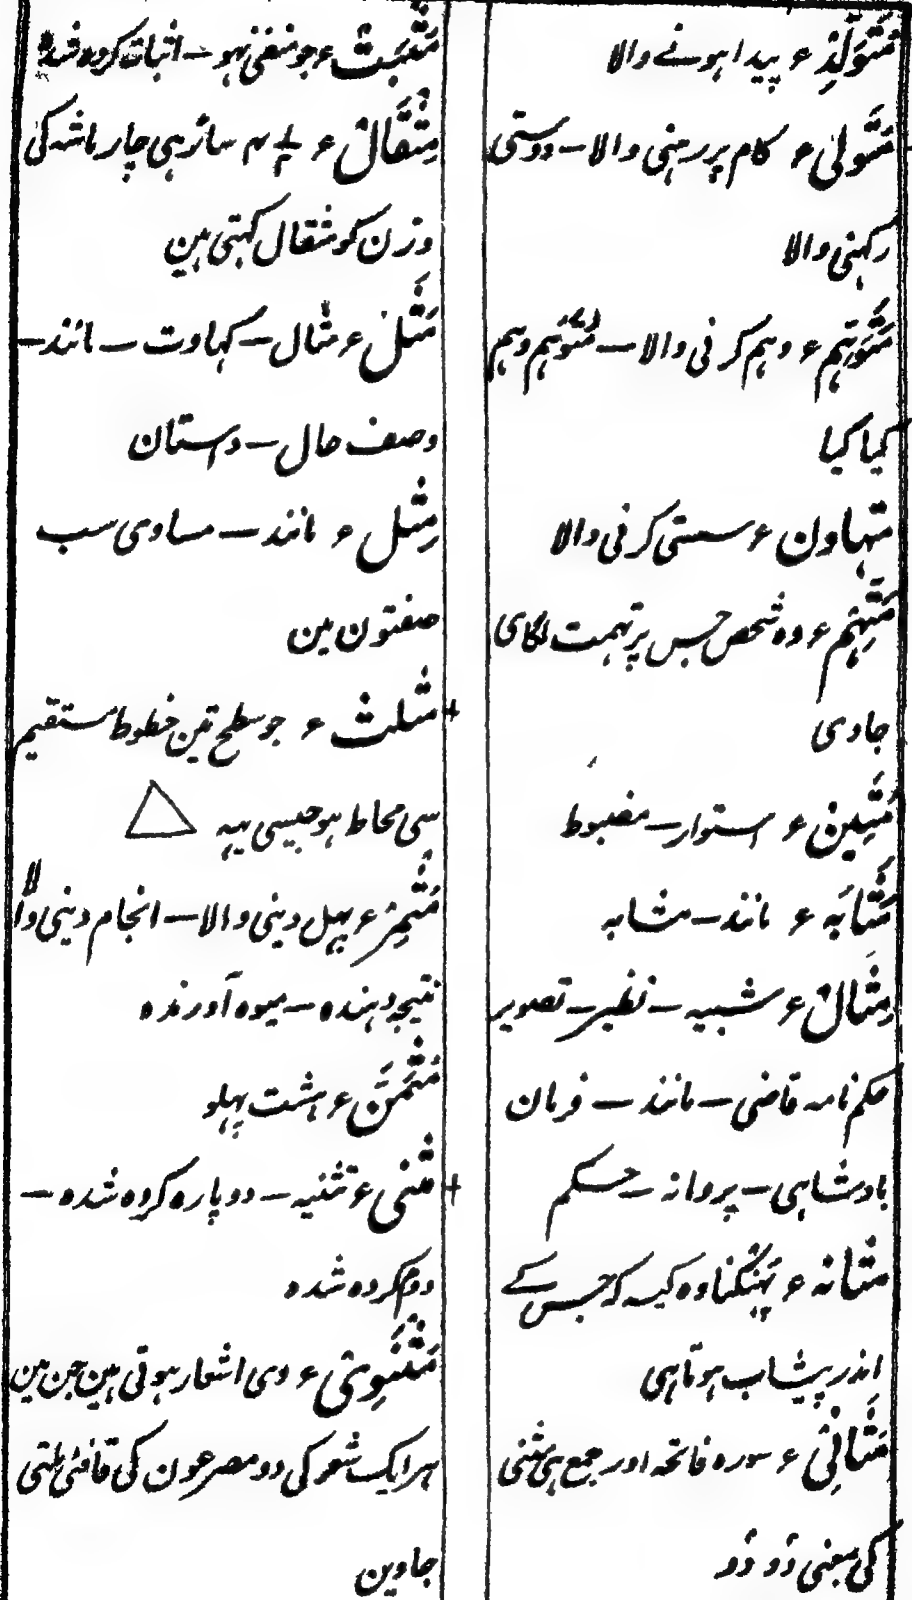 مُتَوَلِّدْ ع پیدا ہونے والا
مُتَوَلِّی ع کام پر رہنی والا — دوستی
رکہنی والا
مُتَوَہِّم ع وہم کرنی والا — مُتَوَہَّم وہم
کیا گیا
متہاون ع سستی کرنی والا
مُتَّہَم ع وہ شخص جس پر تہمت لگای
جاوی
مَتِین ع استوار — مضبوط
مُتَشَابَہ ع مانند — مشابہ
مِثَالْ ع شبیہ — نظیر — تصویر
حکم نامہ قاضی — مانند — فرمان
بادشاہی — پروانہ — حکم
مثانہ ع پُہنکنا وہ کیسہ کہ جس کے
اندر پیشاب ہوتاہی
مَثَانِیْ ع سورہ فاتحہ اور جمع ہی مثنی
کی بمعنی دُو دُو
مُثْبَتْ ع جو منفی نہو — اثبات کردہ شدہ
مِثْقَالْ ع ۴ ساڑہی چار ماشہ کی
وزن کو مثقال کہتی ہین
مَثَلْ ع مثال — کہاوت — مانند —
وصف حال — داستان
مِثْل ع مانند — مساوی سب
صفتون مین
مثلث ع جو سطح تین خطوط مستقیم
سی محاط ہو جیسی یہہ
مُثْمِرْ ع پہل دینی والا — انجام دینی والا
نتیجہ دہندہ — میوہ آورندہ
مُثَمَّنْ ع ہشت پہلو
مثنی ع تثنیہ — دوبارہ کردہ شدہ —
دوم کردہ شدہ
مَثْنَوِی ع وی اشعار ہوتی ہین جن مین
ہر ایک شعر کی دو مصرعون کی قافئی ملتی
جاوین